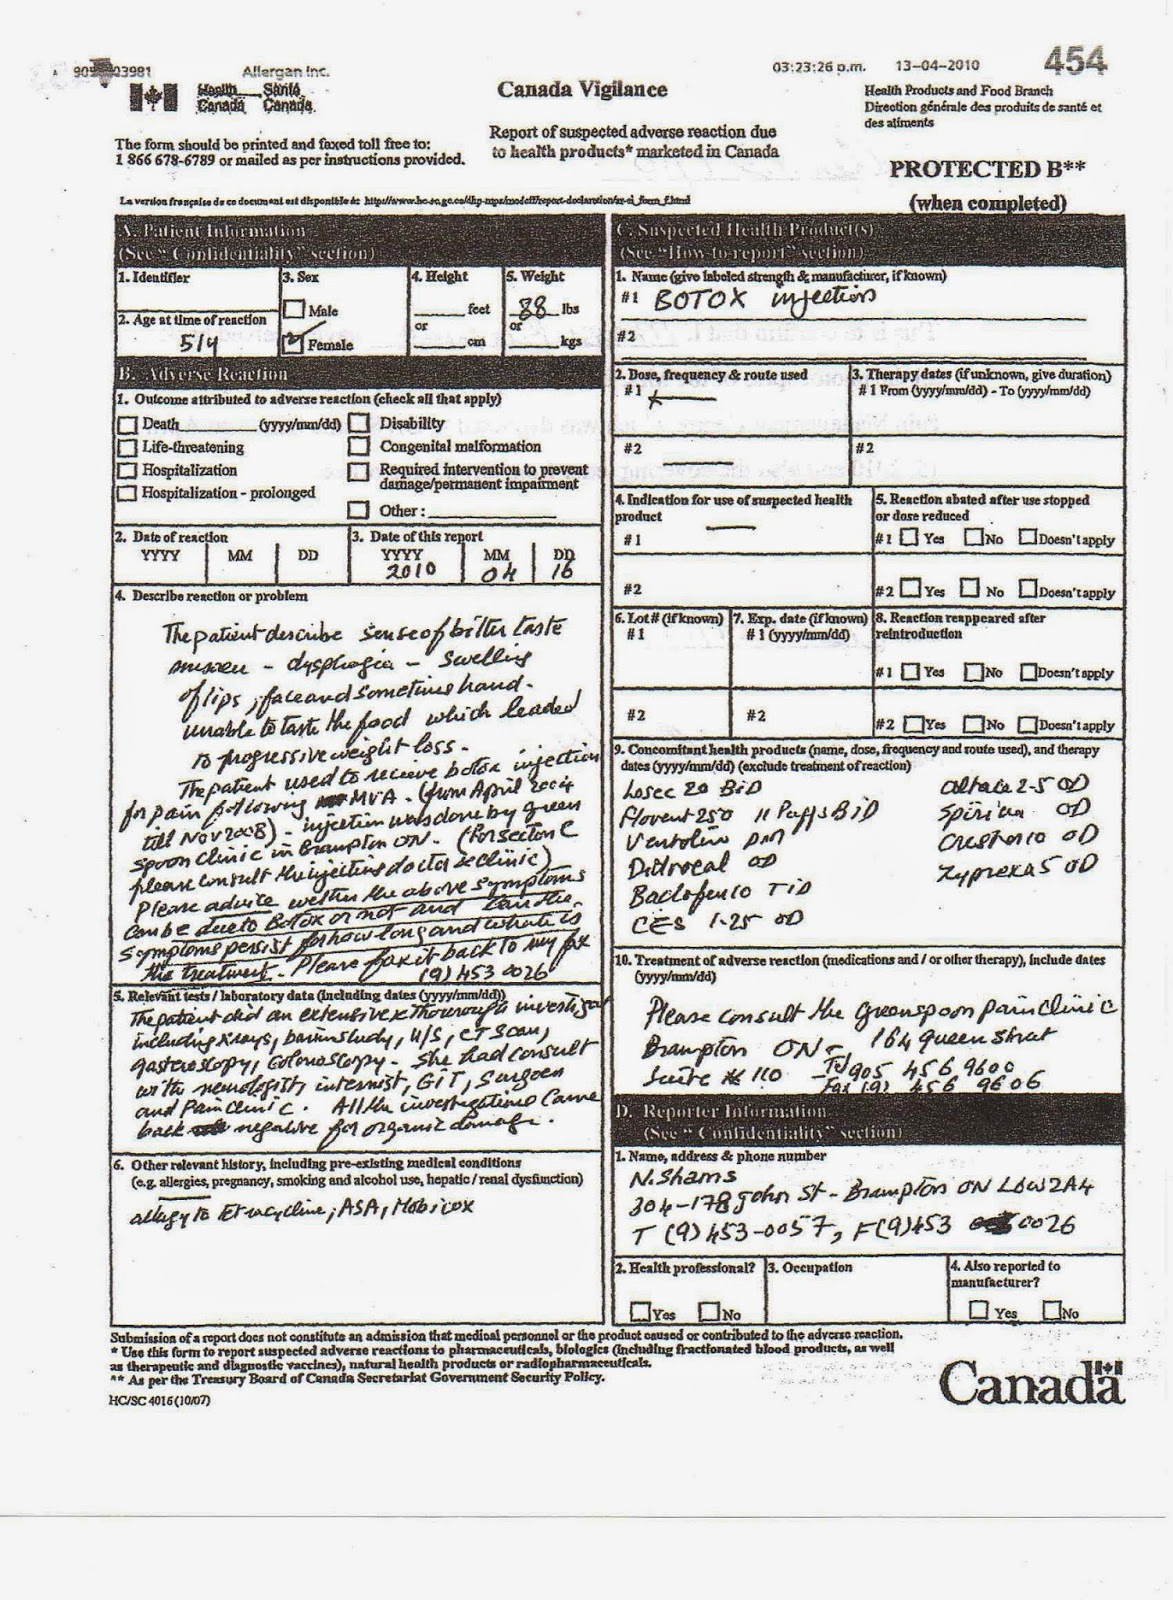 Allergan Inc.
03:23:26 p.m. 13-04-2010
454
Health Santé
Canada Canada
Canada Vigilance
Health Products and Food Branch
Direction générale des produits de santé et
des aliments
The form should be printed and faxed toll free to:
1 866 678-6789 or mailed as per instructions provided.
Report of suspected adverse reaction due
to health products* marketed in Canada
PROTECTED B**
(when completed)
La version française de ce document est disponible à:
A. Patient Information
(See "Confidentiality" section)
1. Identifier
2. Age at time of reaction
51y
3. Sex
Male
Female
4. Height
feet
or
cm
5. Weight
88 lbs
or
kgs
B. Adverse Reaction
1. Outcome attributed to adverse reaction (check all that apply)
Death (yyyy/mm/dd)
Life-threatening
Hospitalization
Hospitalization - prolonged
Disability
Congenital malformation
Required intervention to prevent
damage/permanent impairment
Other :
2. Date of reaction
YYYY MM DD
3. Date of this report
YYYY MM DD
2010 04 16
4. Describe reaction or problem
The patient describe sense of bitter taste
- dysphagia - swelling
of lips, face and sometime hand.
unable to taste the food which leaded
to progressive weight loss.
The patient used to recieve botox injection
for pain following MVA. (from April 2004
till Nov 2008) - injection was done by green
spoon clinic in Brampton ON. (For section C
please consult the injecting doctor & clinic)
Please advice wether the above symptoms
can be due to Botox or not and can the
symptoms persist for how long and what is
the treatment. Please fax it back to my fax
(9)453 0026
5. Relevant tests / laboratory data (including dates (yyyy/mm/dd))
The patient did an extensive & thorough
including xrays, barium study, U/S, CT Scan,
gasteroscopy, Colonoscopy. She had consult
with neurologist, internist, GIT, Surgeon
and Pain Clinic. All the investigations came
back negative for organic damage.
6. Other relevant history, including pre-existing medical conditions
(e.g. allergies, pregnancy, smoking and alcohol use, hepatic / renal dysfunction)
allergy to Tetracycline, ASA, Mobicox
C. Suspected Health Product(s)
(See "How to report" section)
1. Name (give labeled strength & manufacturer, if known)
#1 BOTOX injection
#2
2. Dose, frequency & route used
#1
#2
3. Therapy dates (if unknown, give duration)
# 1 From (yyyy/mm/dd) - To (yyyy/mm/dd)
#2
4. Indication for use of suspected health
product
#1
#2
5. Reaction abated after use stopped
or dose reduced
#1 Yes No Doesn't apply
#2 Yes No Doesn't apply
6. Lot # (if known)
#1
#2
7. Exp. date (if known)
# 1 (yyyy/mm/dd)
#2
8. Reaction reappeared after
reintroduction
#1 Yes No Doesn't apply
#2 Yes No Doesn't apply
9. Concomitant health products (name, dose, frequency and route used), and therapy
dates (yyyy/mm/dd) (exclude treatment of reaction)
Losec 20 BiD
Flovent 250 II Puffs BiD
Ventolin
Didrocal OD
Baclofen 10 TiD
CES 1.25 OD
Altace 2.5 OD
Spiriva OD
Crestor 10 OD
Zyprexa 5 OD
10. Treatment of adverse reaction (medications and / or other therapy), include dates
(yyyy/mm/dd)
Please consult the Greenspoon Pain Clinic
Brampton ON - 164 queen Street
Suite # 110 Tel 905 456 9600
Fax (9) 456 9606
D. Reporter Information
(See "Confidentiality" section)
1. Name, address & phone number
N. Shams
304-178 John St - Brampton ON L6W2A4
T (9) 453-0057, F (9) 453 0026
2. Health professional?
Yes No
3. Occupation
4. Also reported to
manufacturer?
Yes No
Submission of a report does not constitute an admission that medical personnel or the product caused or contributed to the adverse reaction.
* Use this form to report suspected adverse reactions to pharmaceuticals, biologics (including fractionated blood products, as well
as therapeutic and diagnostic vaccines), natural health products or radiopharmaceuticals.
** As per the Treasury Board of Canada Secretariat Government Security Policy.
HC/SC 4016 (10/07)
Canada